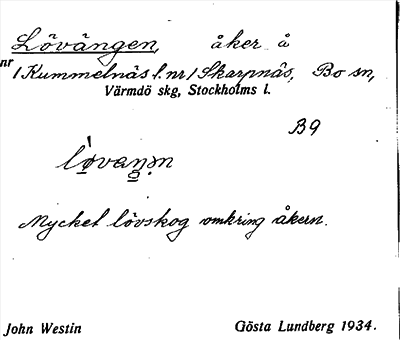 Lövängen, åker å
nr
1 Kummelnäs l. nr 1 Skarpnäs, Bo sn,
Värmdö skg, Stockholms l.
B9
Mycket lövskog omkring åkern.
John Westin Gösta Lundberg 1934.